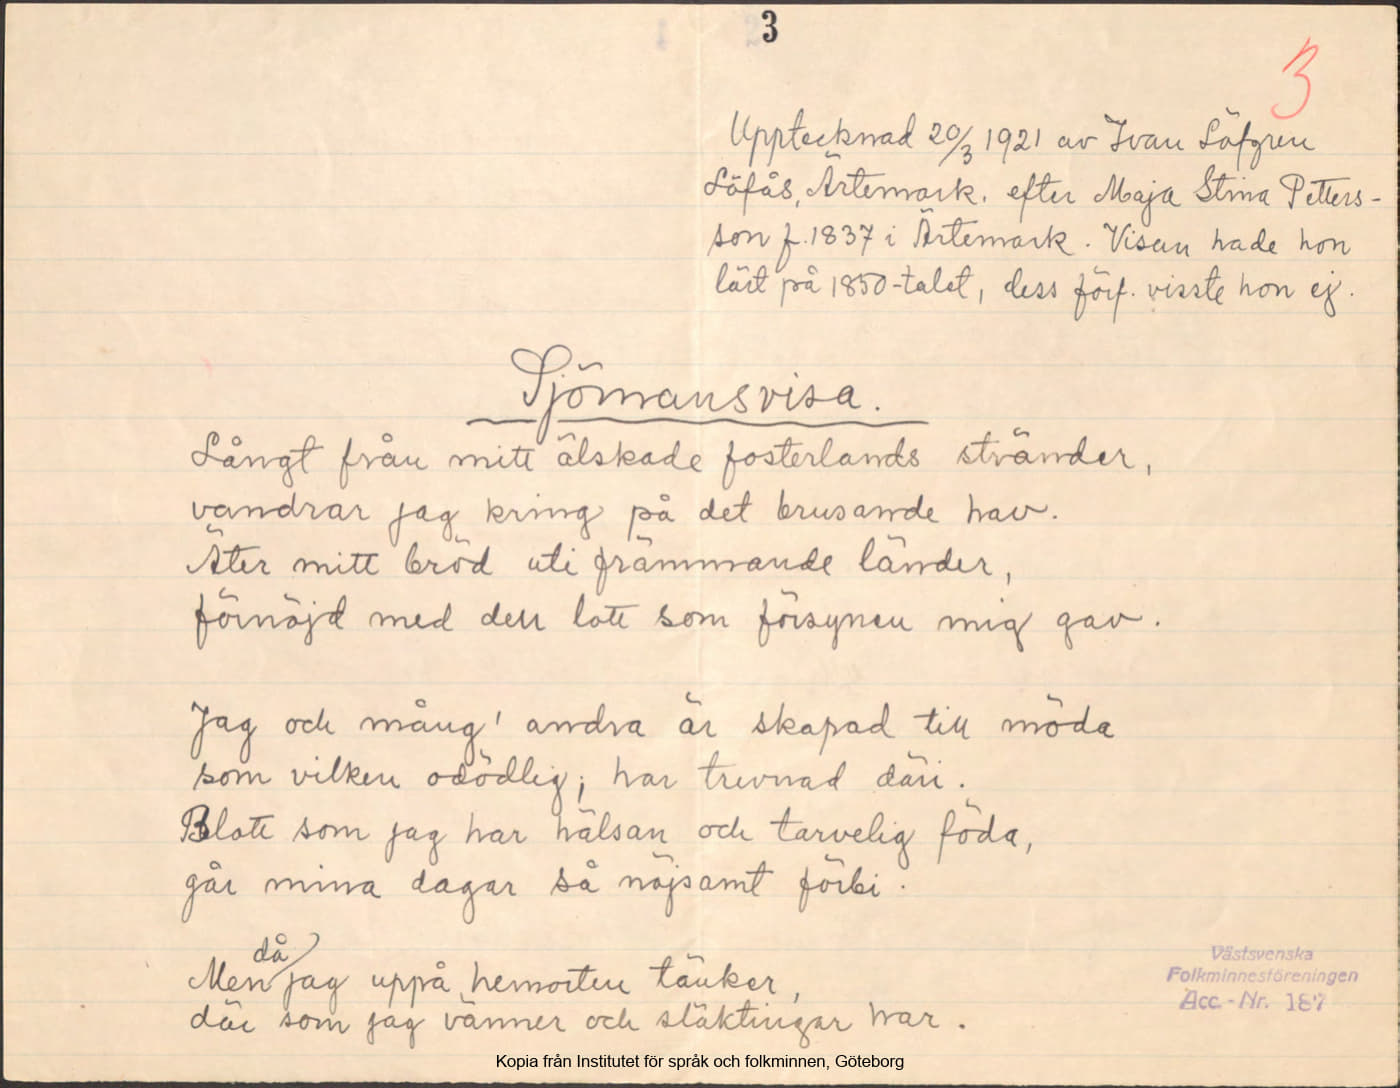 3
3
Upptecknad 20/3 1921 av Ivan Löfgren
Löfås, Ärtemark. efter Maja Stina Petters-
son f. 1837 i Ärtemark. Visan hade hon
lärt på 1850-talet, dess förf. visste hon ej.
Sjömansvisa.
Långt från mitt älskade fosterlands stränder,
vandrar jag kring på det brusande hav.
Äter mitt bröd uti främmande länder,
förnöjd med den lott som försynen mig gav.
Jag och mång' andra är skapad till möda
som vilken odödlig; har trevnad däri.
Blott som jag har hälsan och tarvelig föda,
går mina dagar så nöjsamt förbi.
Men då jag uppå hemorten tänker,
där som jag vänner och släktingar har.
Västsvenska
Folkminnesföreningen
Acc.-Nr. 187
Kopia från Institutet för språk och folkminnen, Göteborg